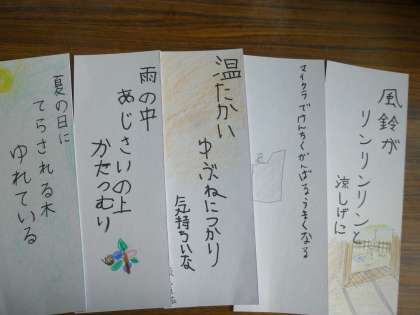 風鈴が
リンリンリンと
涼しげに
マイクラでけんちくがんばるうまくなる
温たかい
ゆぶねにつかり
気持ちいな
雨の中
あじさいの上
かたつむり
夏の日に
てらされる木
ゆれている